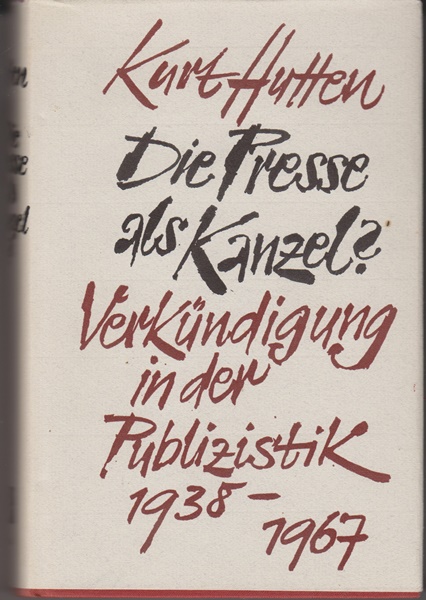 Kurt Hutten
Die Presse
als Kanzel?
Verkündigung
in der
Publizistik
1938-
1967